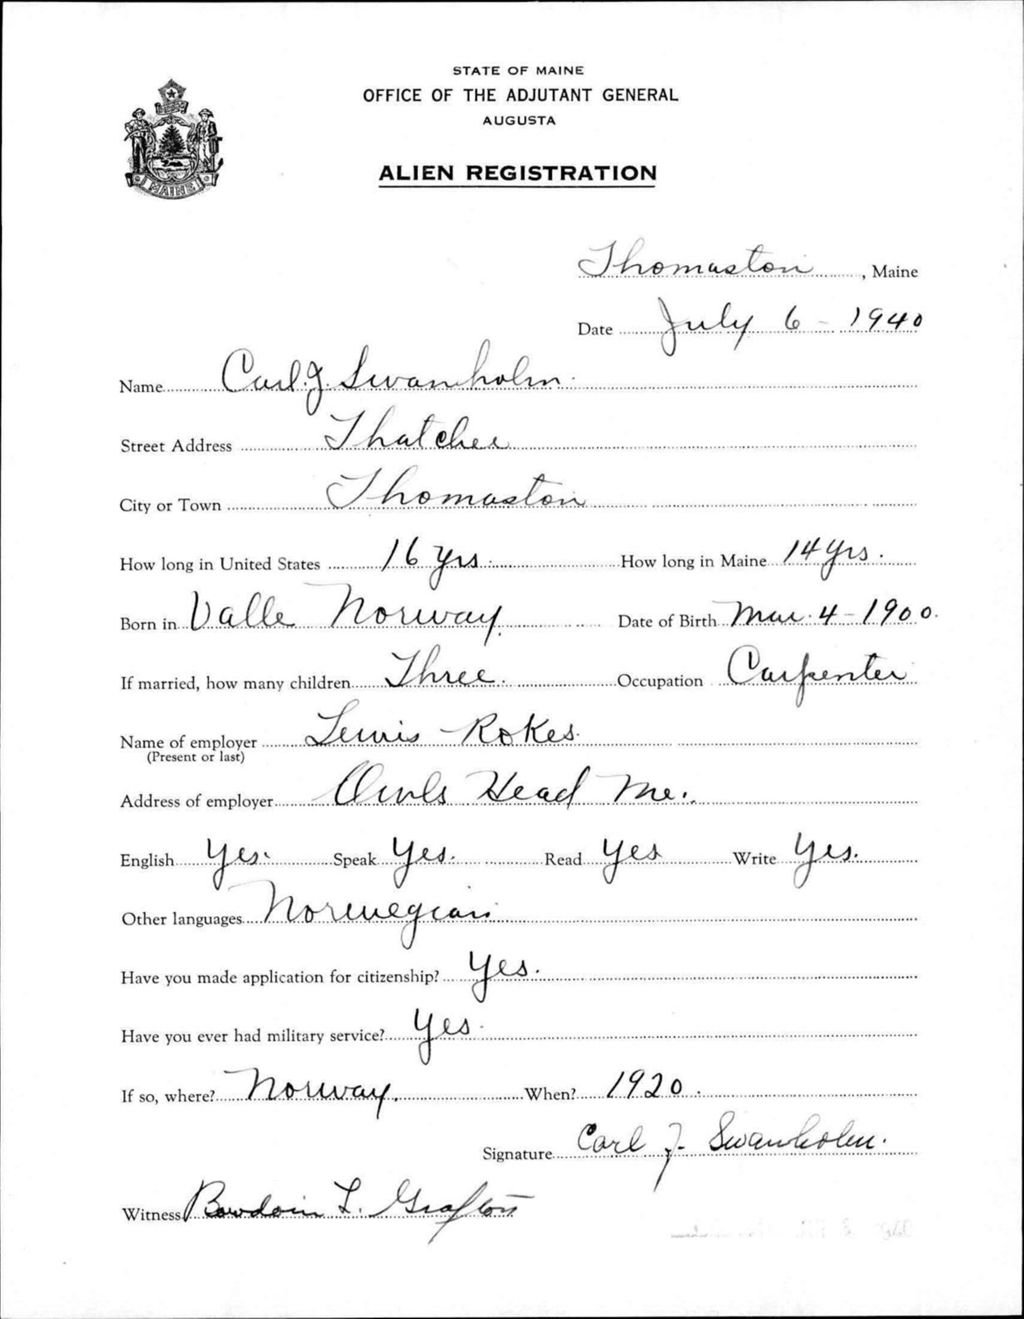 STATE OF MAINE
OFFICE OF THE ADJUTANT GENERAL
AUGUSTA
ALIEN REGISTRATION
MAINE
Thomaston, Maine
Date July 6 - 1940
Name Carl. J. Swanholm.
Street Address Thatcher
City or Town Thomaston
How long in United States 16 yrs. How long in Maine 14 yrs.
Born in Valle Norway. Date of Birth Mar. 4 - 1900.
If married, how many children Three. Occupation Carpenter
Name of employer Lewis Rokes.
(Present or last)
Address of employer Owls Head Me.
English Yes. Speak Yes. Read Yes Write Yes.
Other languages Norwegian
Have you made application for citizenship? Yes.
Have you ever had military service? Yes.
If so, where? Norway. When? 1920.
Signature Carl J. Swanholm.
Witness Bowdoin L. Grafton